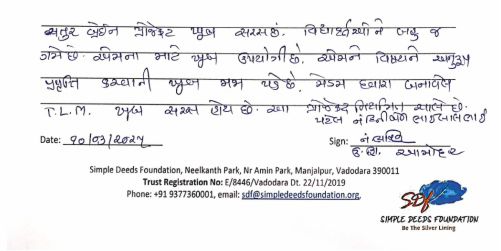 ચતુર બ્રેઈન પ્રોજેક્ટ ખુબ સરસ છે. વિદ્યાર્થીઓને બહુ જ
ગમે છે. એમના માટે ખુબ ઉપયોગી છે. એમને વિષયને અનુરૂપ
પ્રવૃત્તિ કરવાની ખુબ મજા પડે છે. મેડમ દ્વારા બનાવેલ
T.L.M. ખુબ સરસ હોય છે. આ પ્રોજેક્ટ નિયમિત ચાલે છે.
પટેલ નંદિનીબેન
Date: ૧૦/૦૩/૨૦૨૫ Sign:
Simple Deeds Foundation, Neelkanth Park, Nr Amin Park, Manjalpur, Vadodara 390011
Trust Registration No: E/8446/Vadodara Dt. 22/11/2019
Phone: +91 9377360001, email: sdf@simpledeedsfoundation.org,
SDF
SIMPLE DEEDS FOUNDATION
Be The Silver Lining